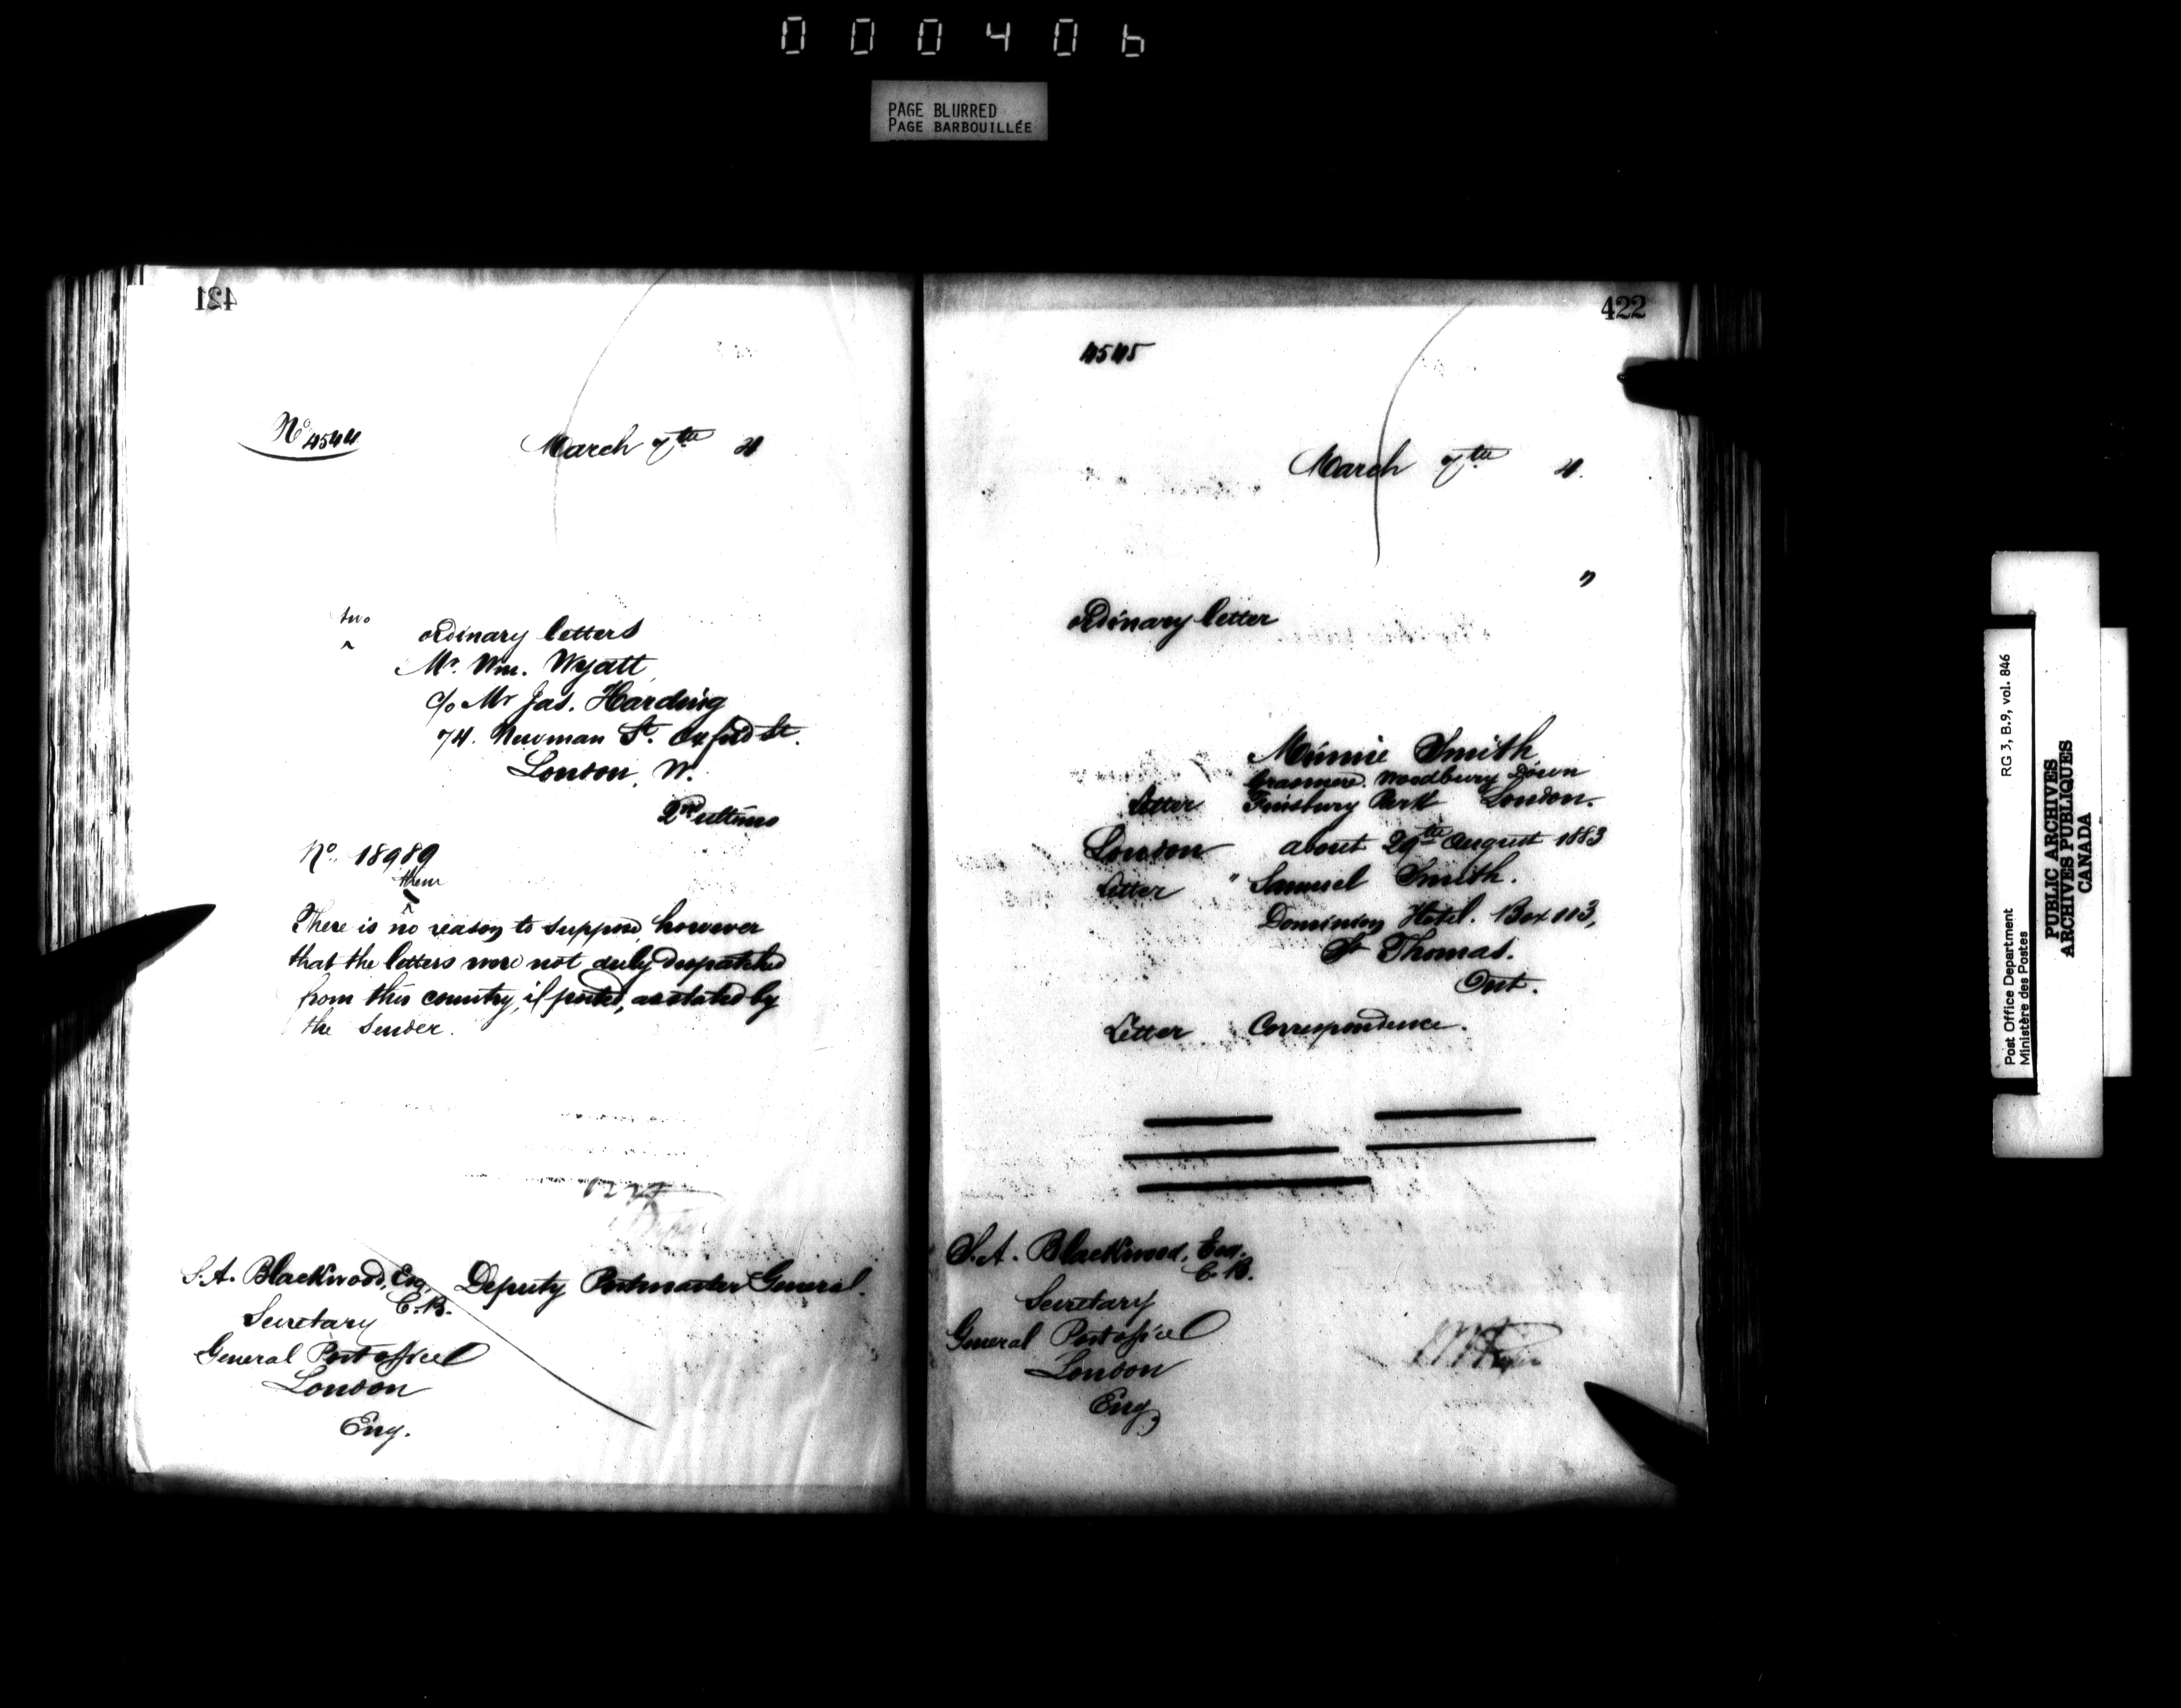 000406
PAGE BLURRED
PAGE BARBOUILLÉE
421
No 4544
March 7th 4
two
^
ordinary letters
Mr. Wm. Wyatt
c/o Mr Jas. Harding
74. Newman St. Oxford St.
London, W.
2nd ultimo
No. 18989
There is no reason to suppose, however
that the letters were not duly despatched
from this country, if posted, as stated by
the sender.
S. A. Blackwood, Esq. Deputy Postmaster General.
C.B.
Secretary
General Post office
London
Eng.
422
4545
March 7th 4.
"
ordinary letter
Minnie Smith
Grasmere. Woodbury Down
Letter Finsbury Park London.
London about 29th August 1883
Letter " Samuel Smith.
Dominion Hotel. Box 113,
St Thomas.
Ont.
Letter Correspondence.
S. A. Blackwood, Esq.
C.B.
Secretary
General Post office
London
Eng
Post Office Department
Ministère des Postes
RG 3, B.9, vol. 846
PUBLIC ARCHIVES
ARCHIVES PUBLIQUES
CANADA